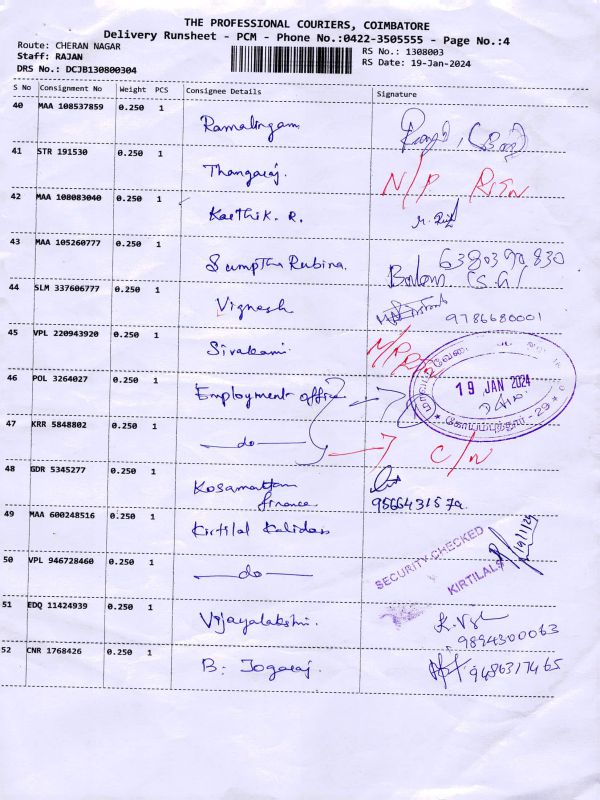 THE PROFESSIONAL COURIERS, COIMBATORE
Delivery Runsheet - PCM - Phone No.:0422-3505555 - Page No.:4
Route: CHERAN NAGAR
RS No.: 1308003
Staff: RAJAN
RS Date: 19-Jan-2024
DRS No.: DCJB130800304
S No Consignment No Weight PCS Consignee Details Signature
40 MAA 108537859 0.250 1 Ramalingam
41 STR 191530 0.250 1 Thangaraj. N/P RTN
42 MAA 108083040 0.250 1 Karthik. R.
43 MAA 105260777 0.250 1 Sumptha Rubina. 6380390830
44 SLM 337606777 0.250 1 Vignesh 9786680001
45 VPL 220943920 0.250 1 Sivakami. N/P RTN
19 JAN 2024
46 POL 3264027 0.250 1 Employment office
47 KRR 5848802 0.250 1 —do— C/N
48 GDR 5345277 0.250 1 Kosamattam
finance
49 MAA 600248516 0.250 1 Kirtilal Kalidas
SECURITY CHECKED
KIRTILALS
50 VPL 946728460 0.250 1 —do—
51 EDQ 11424939 0.250 1 Vijayalakshmi. 9894300063
52 CNR 1768426 0.250 1 B. Jogaraj. 9486317465